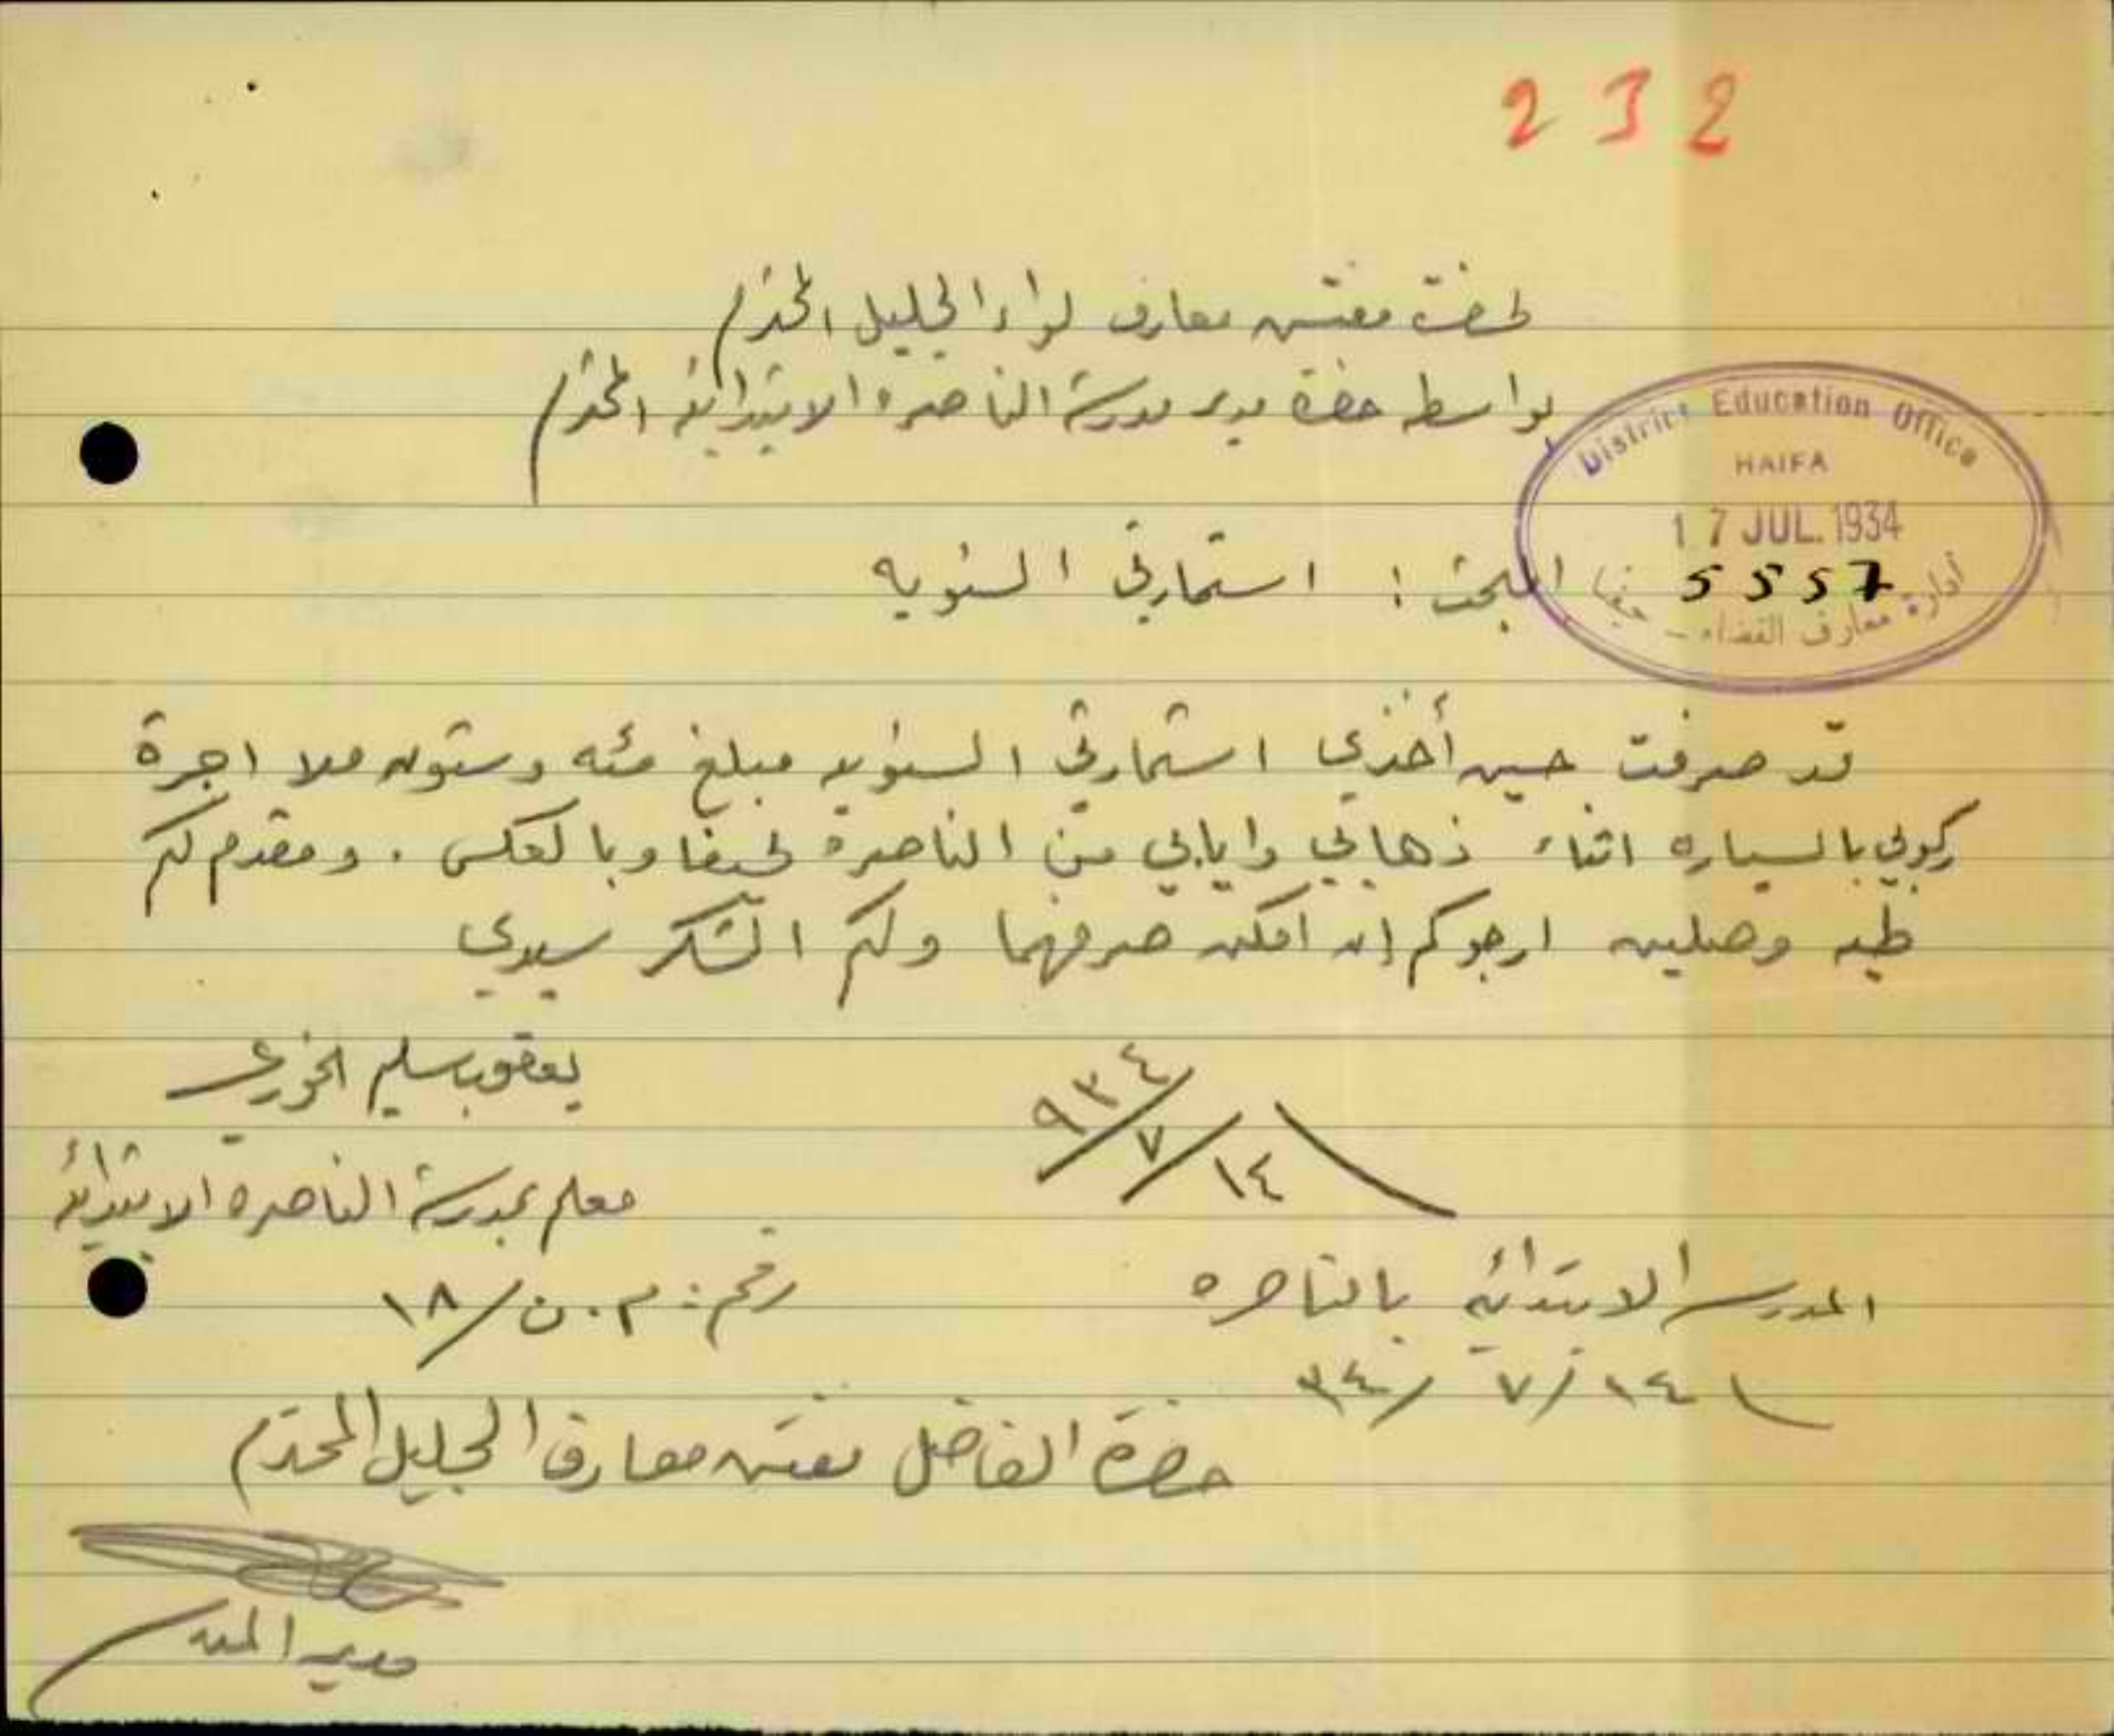 232
لحضرة مفتش معارف لواء الجليل المحترم
بواسطة حضرة مدير مدرسة الناصره الابتدائية المحترم
District Education Office
HAIFA
17 JUL. 1934
5557
ادارة معارف القضاء - حيفا
البحث: استمارتي السنويه
قد صرفت حين أخذي استمارتي السنويه مبلغ مئه وستون ملا اجرة
ركوبي بالسياره اثناء ذهابي وايابي من الناصرة لحيفا وبالعكس. ومقدم لكم
طيه وصلين ارجوكم إن امكن صرفهما ولكم الشكر سيدي
يعقوب سليم الخوري
٩٣٤/٧/١٤
معلم بمدرسة الناصره الابتدائية
المدرسة الابتدائيه بالناصره
رقم: م.ن/١٨
٣٤/٧/١٤
حضرة الفاضل مفتش معارف الجليل المحترم
مدير المدرسة